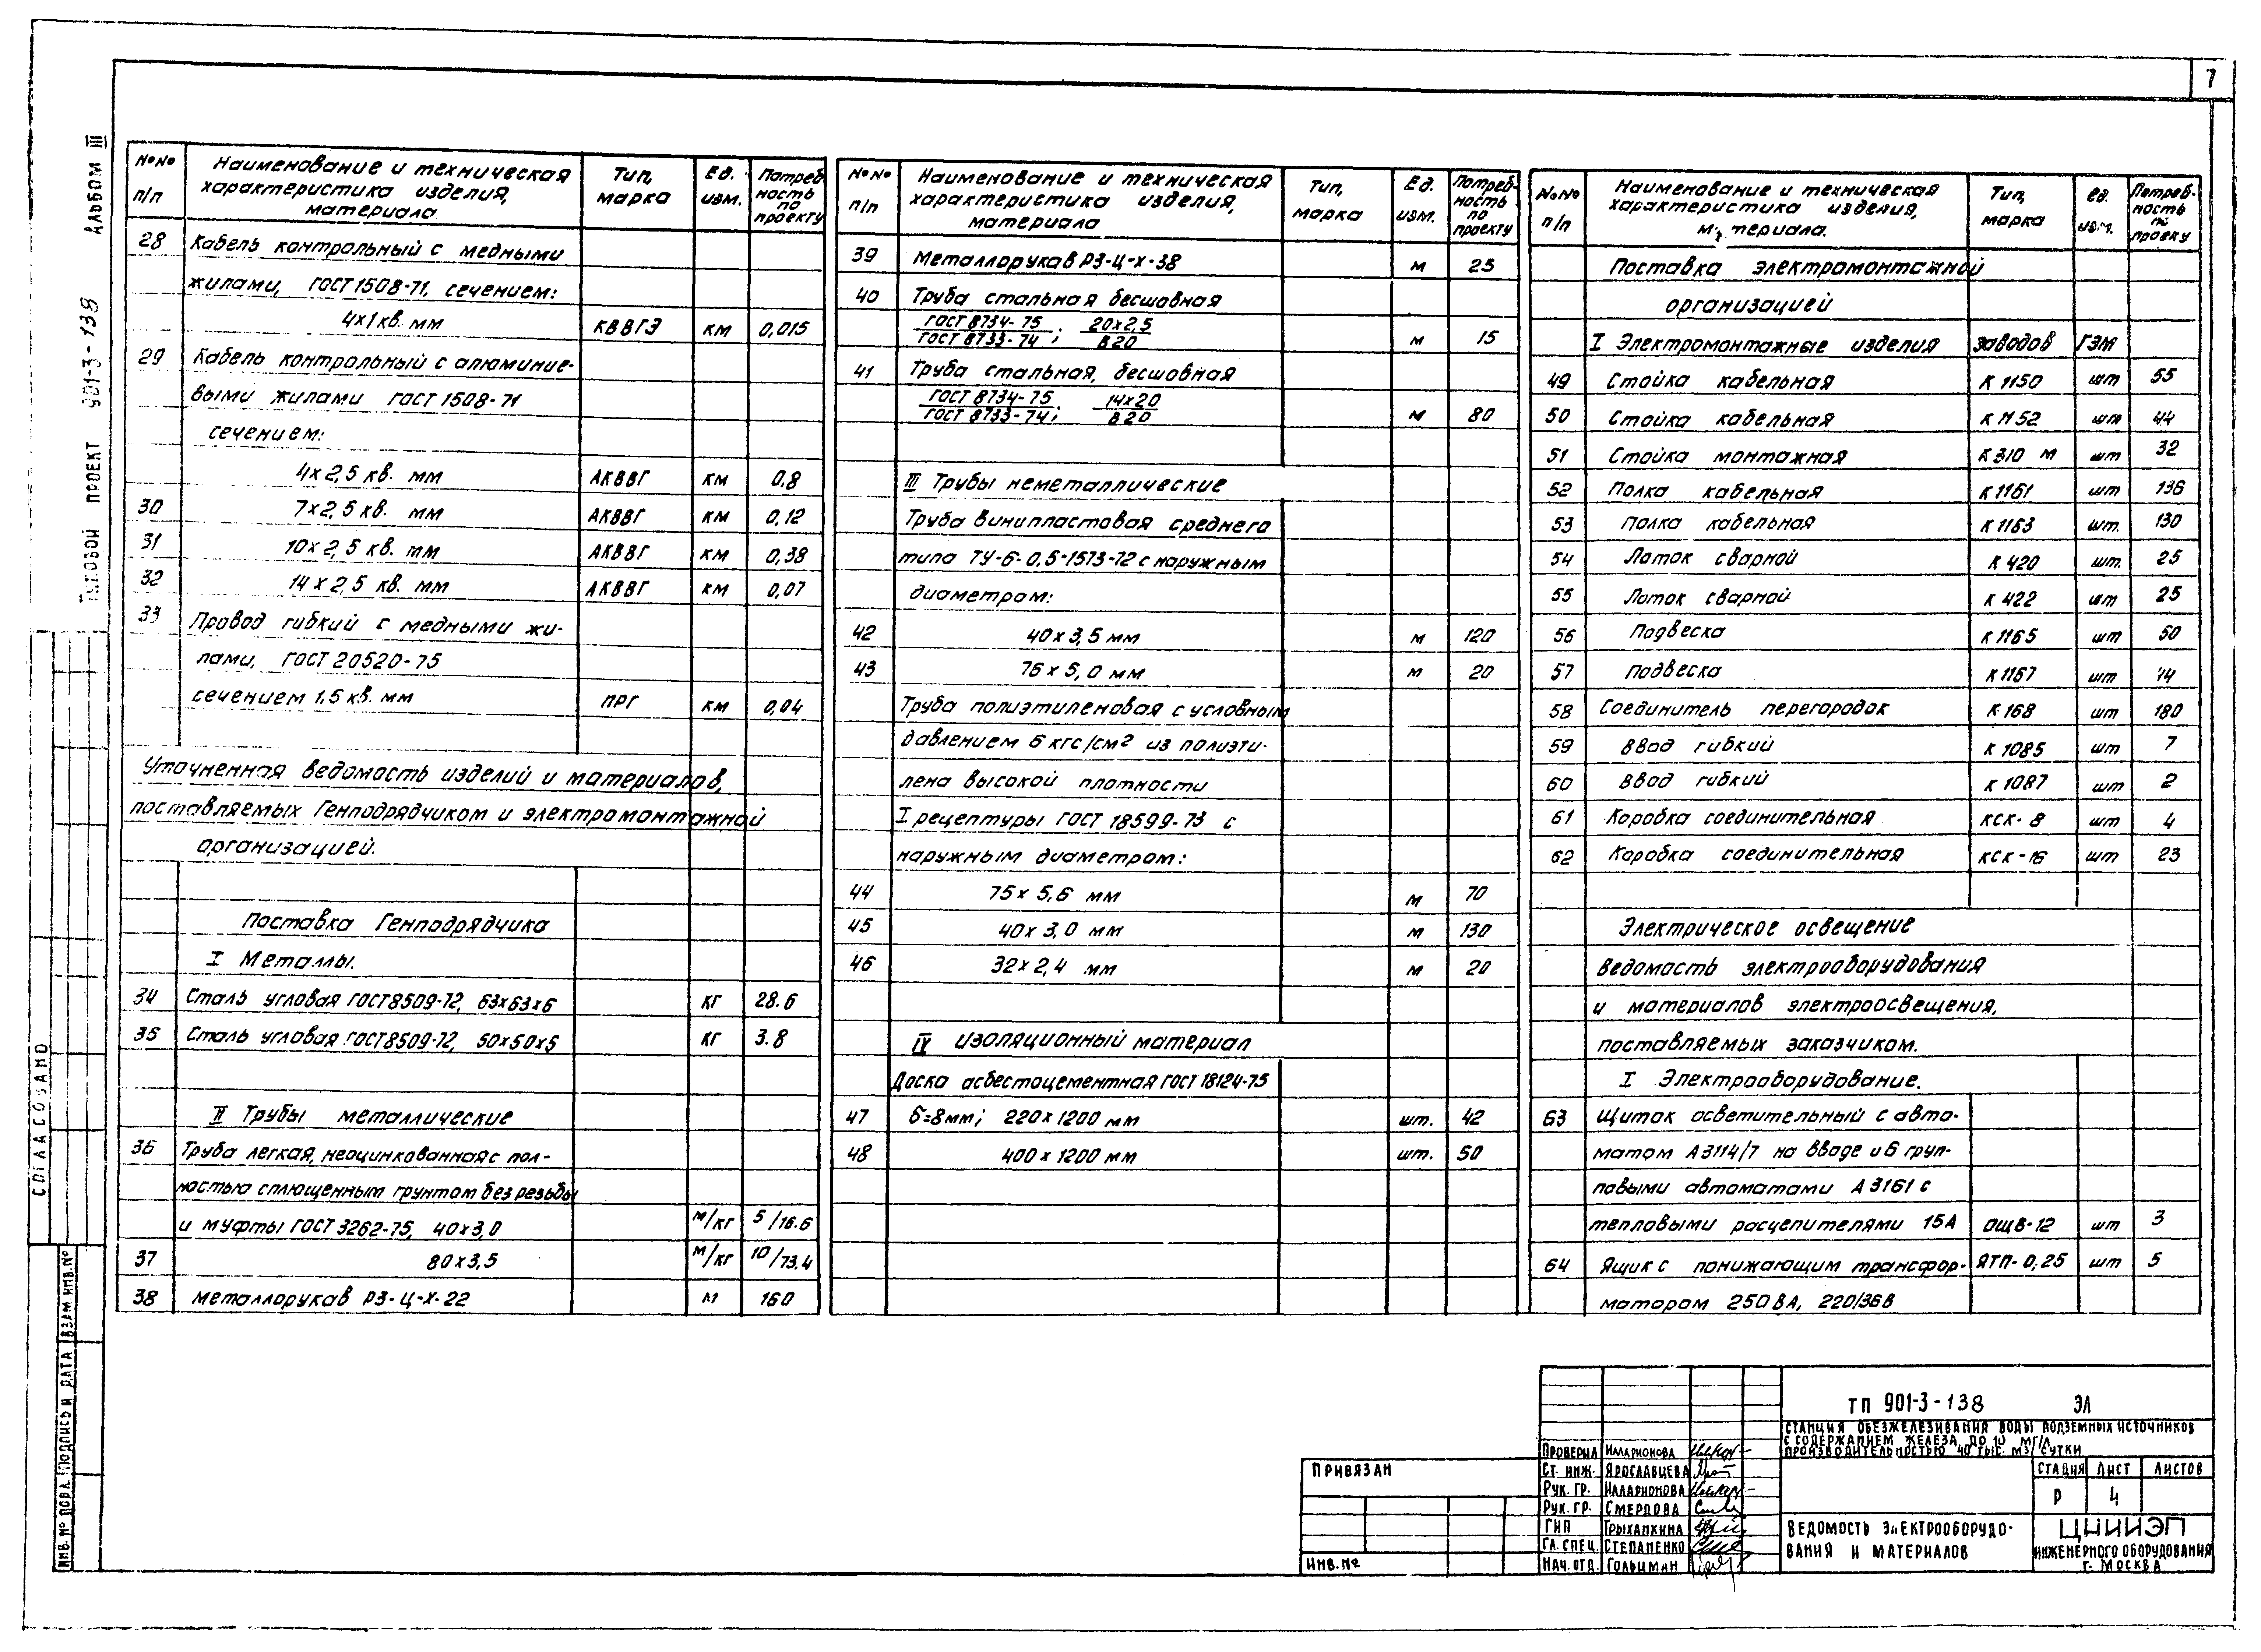 7
Альбом III
Типовой проект 901-3-138
СОГЛАСОВАНО
ИНВ. № ПОДЛ. ПОДПИСЬ И ДАТА ВЗАМ. ИНВ. №
№№ п/п
Наименование и техническая характеристика изделия, материала
Тип, марка
Ед. изм.
Потребность по проекту
28 Кабель контрольный с медными
жилами, ГОСТ 1508-71, сечением:
4х1 кв. мм КВВГЭ км 0,015
29 Кабель контрольный с алюминие-
выми жилами ГОСТ 1508-71
сечением:
4х2,5 кв. мм АКВВГ км 0,8
30 7х2,5 кв. мм АКВВГ км 0,12
31 10х2,5 кв. мм АКВВГ км 0,38
32 14х2,5 кв. мм АКВВГ км 0,07
33 Провод гибкий с медными жи-
лами, ГОСТ 20520-75
сечением 1,5 кв. мм ПРГ км 0,04
Уточненная ведомость изделий и материалов,
поставляемых Генподрядчиком и электромонтажной
организацией.
Поставка Генподрядчика
I Металлы.
34 Сталь угловая ГОСТ 8509-72, 63х63х6 кг 28.6
35 Сталь угловая ГОСТ 8509-72, 50х50х5 кг 3.8
II Трубы металлические
36 Труба легкая, неоцинкованная с пол-
ностью сплющенным грунтом без резьбы
и муфты ГОСТ 3262-75, 40х3,0 м/кг 5/16.6
37 80х3,5 м/кг 10/73.4
38 Металлорукав РЗ-Ц-Х-22 м 160
№№ п/п
Наименование и техническая характеристика изделия, материала
Тип, марка
Ед. изм.
Потребность по проекту
39 Металлорукав РЗ-Ц-Х-38 м 25
40 Труба стальная бесшовная
ГОСТ 8734-75 20х2,5
ГОСТ 8733-74; В20 м 15
41 Труба стальная, бесшовная
ГОСТ 8734-75 14х20
ГОСТ 8733-74; В20 м 80
III Трубы неметаллические
Труба винипластовая среднего
типа ТУ-6-0,5-1573-72 с наружным
диаметром:
42 40х3,5 мм м 120
43 76х5,0 мм м 20
Труба полиэтиленовая с условным
давлением 6 кгс/см² из полиэти-
лена высокой плотности
I рецептуры ГОСТ 18599-73 с
наружным диаметром:
44 75х5,6 мм м 70
45 40х3,0 мм м 130
46 32х2,4 мм м 20
IV Изоляционный материал
Доска асбестоцементная ГОСТ 18124-75
47 б=8мм; 220х1200 мм шт. 42
48 400х1200 мм шт. 50
№№ п/п
Наименование и техническая характеристика изделия, материала.
Тип, марка
Ед. изм.
Потребность по проеку
Поставка электромонтажной
организацией
I Электромонтажные изделия заводов ГЭМ
49 Стойка кабельная К 1150 шт 55
50 Стойка кабельная К 1152 шт 44
51 Стойка монтажная К 310 м шт 32
52 Полка кабельная К 1161 шт 136
53 Полка кабельная К 1163 шт. 130
54 Лоток сварной К 420 шт. 25
55 Лоток сварной К 422 шт 25
56 Подвеска К 1165 шт 50
57 Подвеска К 1167 шт 14
58 Соединитель перегородок К 168 шт 180
59 Ввод гибкий К 1085 шт 7
60 Ввод гибкий К 1087 шт 2
61 Коробка соединительная КСК-8 шт 4
62 Коробка соединительная КСК-16 шт 23
Электрическое освещение
Ведомость электрооборудования
и материалов электроосвещения,
поставляемых заказчиком.
I Электрооборудование.
63 Щиток осветительный с авто-
матом А3114/7 на вводе и 6 груп-
повыми автоматами А 3161 с
тепловыми расцепителями 15А ОЩВ-12 шт 3
64 Ящик с понижающим трансфор- ЯТП-0,25 шт 5
матором 250 ВА, 220/36В
ТП 901-3-138 ЭЛ
СТАНЦИЯ ОБЕЗЖЕЛЕЗИВАНИЯ ВОДЫ ПОДЗЕМНЫХ ИСТОЧНИКОВ
С СОДЕРЖАНИЕМ ЖЕЛЕЗА ДО 10 МГ/Л
ПРОИЗВОДИТЕЛЬНОСТЬЮ 40 ТЫС. М3/СУТКИ
ПРИВЯЗАН
ИНВ. №
ПРОВЕРИЛ ИЛАРИОНОВА
СТ. ИНЖ. ЯРОСЛАВЦЕВА
РУК. ГР. ИЛАРИОНОВА
РУК. ГР. СМЕРДОВА
ГИП ТРЫХАНКИНА
ГЛ. СПЕЦ. СТЕПАНЕНКО
НАЧ. ОТД. ГОЛЬЦМАН
СТАДИЯ ЛИСТ ЛИСТОВ
Р 4
ВЕДОМОСТЬ ЭЛЕКТРООБОРУДО-
ВАНИЯ И МАТЕРИАЛОВ
ЦНИИЭП
ИНЖЕНЕРНОГО ОБОРУДОВАНИЯ
Г. МОСКВА